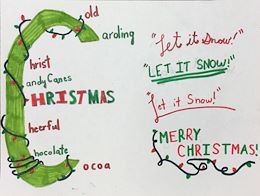 C
old
aroling
hrist
andy Canes
HRISTMAS
heerful
hocolate
ocoa
"Let it Snow!"
"LET IT SNOW!"
"Let it Snow!"
MERRY
CHRISTMAS!